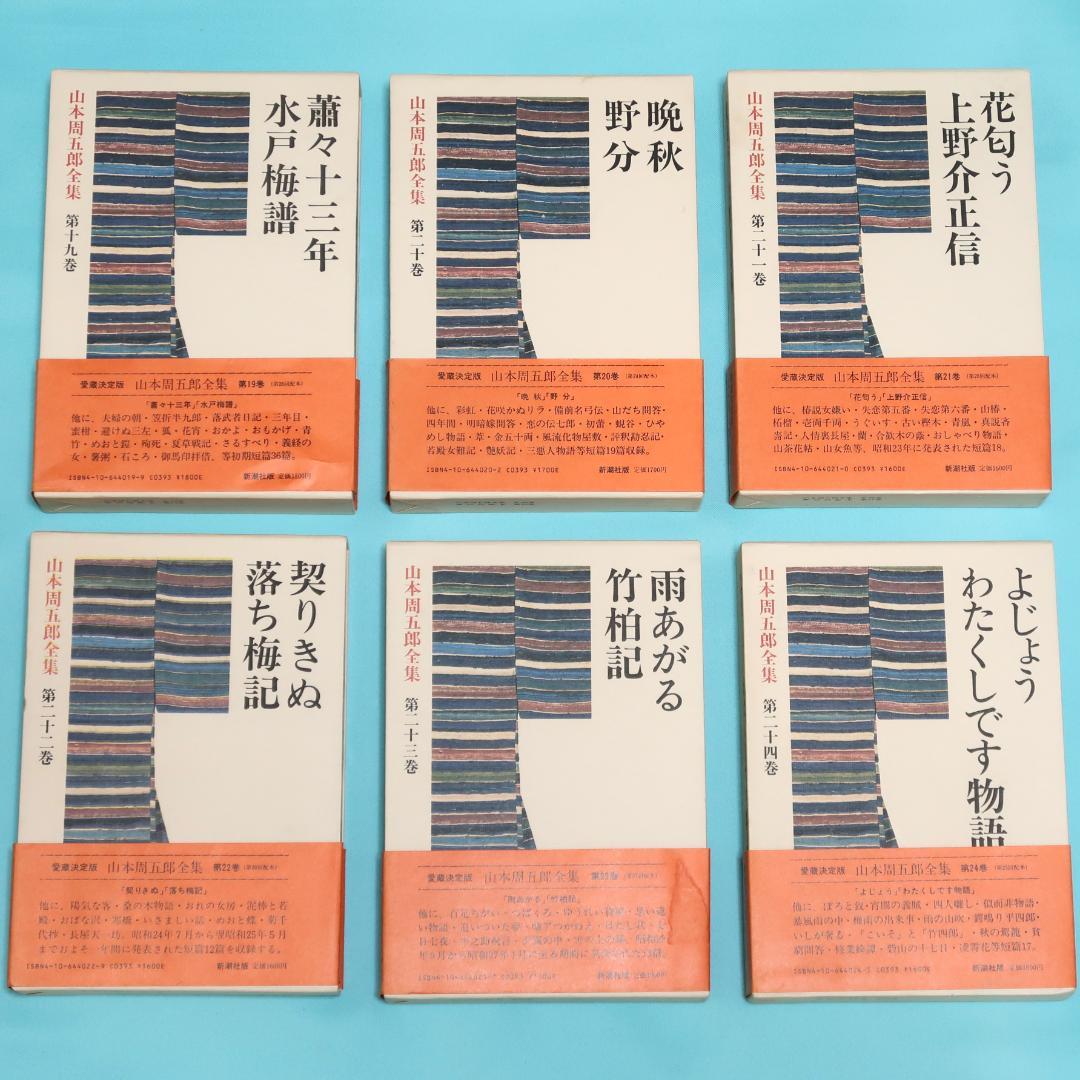 蕭々十三年
水戸梅譜
山本周五郎全集 第十九巻
愛蔵決定版 山本周五郎全集 第19巻
「蕭々十三年」「水戸梅譜」
他に、夫婦の朝・笠折半九郎・落武者日記・三年目・
蜜柑・避けぬ三左・狐・花宵・おかよ・おもかげ・青
竹・めおと鎧・殉死・夏草戦記・さるすべり・義経の
女・薯粥・石ころ・御馬印拝借、等初期短篇36篇。
ISBN4-10-644019-9 C0393 ¥1600E 新潮社版 定価1600円
晩秋
野分
山本周五郎全集 第二十巻
愛蔵決定版 山本周五郎全集 第20巻
「晩秋」「野分」
他に、彩虹・花咲かぬリラ・備前名弓伝・山だち問答・
四年間・明暗嫁問答・恋の伝七郎・初蕾・蜆谷・ひや
めし物語・葦・金五十両・風流化物屋敷・評釈勘忍記・
若殿女難記・艶妖記・三悪人物語等短篇19篇収録。
ISBN4-10-644020-2 C0393 ¥1700E 新潮社版 定価1700円
花匂う
上野介正信
山本周五郎全集 第二十一巻
愛蔵決定版 山本周五郎全集 第21巻
「花匂う」「上野介正信」
他に、椿説女嫌い・失恋第五番・失恋第六番・山椿・
柘榴・壱両千両・うぐいす・古い樫木・青嵐・真説吝
嗇記・人情裏長屋・蘭・合歓木の蔭・おしゃべり物語・
山茶花帖・山女魚等、昭和23年に発表された短篇18。
ISBN4-10-644021-0 C0393 ¥1600E 新潮社版 定価1600円
契りきぬ
落ち梅記
山本周五郎全集 第二十二巻
愛蔵決定版 山本周五郎全集 第22巻
「契りきぬ」「落ち梅記」
他に、陽気な客・桑の木物語・おれの女房・泥棒と若
殿・おばな沢・寒橋・いさましい話・めおと蝶・菊千
代抄・長屋天一坊。昭和24年7月から翌昭和25年5月
までおよそ一年間に発表された短篇12篇を収録する。
ISBN4-10-644022-9 C0393 ¥1600E 新潮社版 定価1600円
雨あがる
竹柏記
山本周五郎全集 第二十三巻
愛蔵決定版 山本周五郎全集
「雨あがる」「竹柏記」
他に、百足ちがい・つばくろ・ゆうれい貸屋・思い違い
新潮社版
よじょう
わたくしです物語
山本周五郎全集 第二十四巻
愛蔵決定版 山本周五郎全集 第24巻
「よじょう」「わたくしです物語」
他に、ぼろと釵・宵闇の義賊・四人囃し・似而非物語・
暴風雨の中・梅雨の出来事・雨の山吹・鍔鳴り平四郎・
いしが奢る・「こいそ」と「竹四郎」・秋の駕籠・貧
窮問答・修業綺譚・碧山の十七日・凌霄花等短篇17。
ISBN4-10-644024-5 C0393 ¥1600E 新潮社版